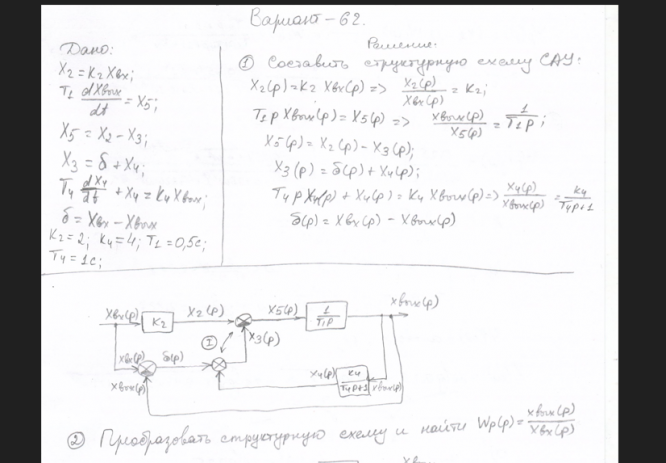 Вариант-62.
Дано:
X2 = K2 Xвх;
T1 dXвых/dt = X5;
X5 = X2 - X3;
X3 = δ + X4;
T4 dX4/dt + X4 = K4 Xвых;
δ = Xвх - Xвых
K2 = 2; K4 = 4; T1 = 0,5c;
T4 = 1c;
Решение:
① Составить структурную схему САУ:
X2(p) = K2 Xвх(p) => X2(p)/Xвх(p) = K2;
T1 p Xвых(p) = X5(p) => Xвых(p)/X5(p) = 1/T1p;
X5(p) = X2(p) - X3(p);
X3(p) = δ(p) + X4(p);
T4 p X4(p) + X4(p) = K4 Xвых(p) => X4(p)/Xвых(p) = K4/T4p+1
δ(p) = Xвх(p) - Xвых(p)
Xвх(p) K2 X2(p) X5(p) 1/T1p Xвых(p)
I X3(p)
Xвх(p) δ(p) X4(p) K4/T4p+1 Xвых(p)
Xвых(p)
② Преобразовать структурную схему и найти Wp(p) = Xвых(p)/Xвх(p)